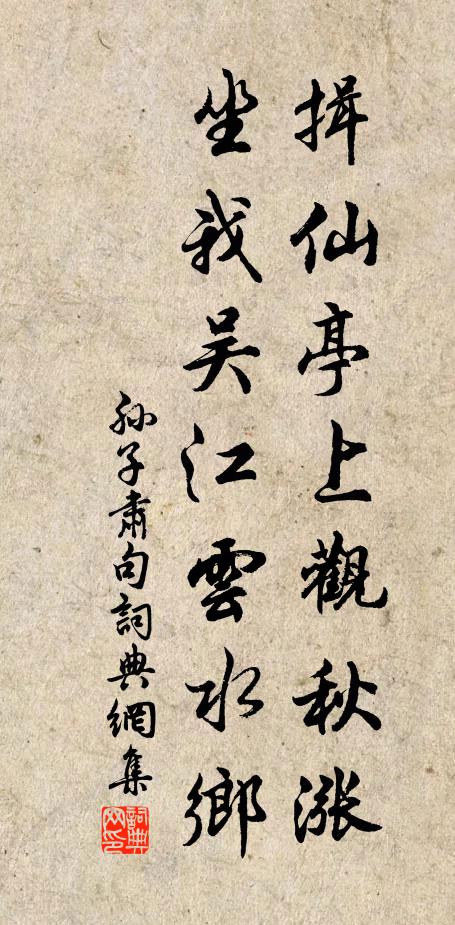 揖仙亭上觀秋漲
坐我吴江雲水鄉
孫子肅句詞典網集
詞典网印